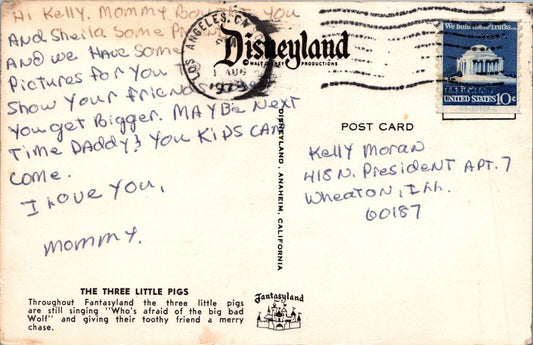 Hi Kelly, Mommy Bought You
And Sheila Some
And we Have Some
Pictures for You To
Show Your friend
You get Bigger. MAYBe Next
Time Daddy & You Kids CAN
Come.
I Love You,
Mommy.
LOS ANGELES, CA
AUG
1979
Disneyland
© WALT DISNEY PRODUCTIONS
We hold these Truths...
UNITED STATES 10c
DISNEYLAND, ANAHEIM, CALIFORNIA
POST CARD
Kelly Moran
418 N. President APT. 7
Wheaton, Ill.
60187
THE THREE LITTLE PIGS
Throughout Fantasyland the three little pigs
are still singing "Who's afraid of the big bad
Wolf" and giving their toothy friend a merry
chase.
Fantasyland